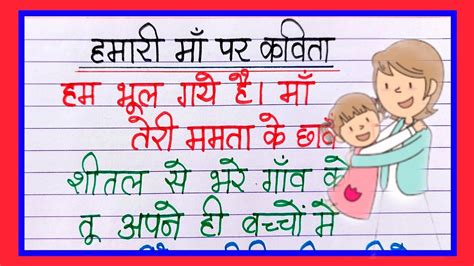 हमारी माँ पर कविता
हम भूल गये है। माँ
तेरी ममता के छाव
शीतल से भरे गाँव के
तू अपने ही बच्चों मे